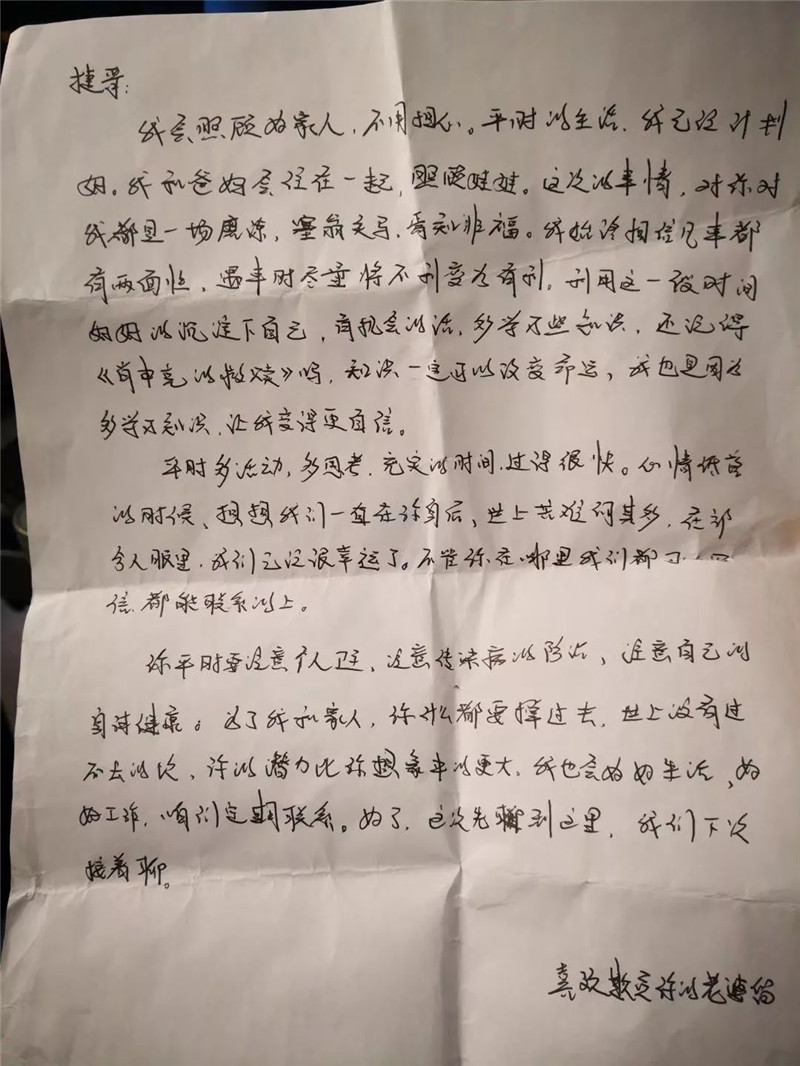 捷哥：
我会照顾好家人，不用担心。平时的生活，我已经计划
好。我和爸妈会住在一起，照顾娃娃。这次的事情，对你对
我都是一场磨练，塞翁失马，焉知非福。我始终相信凡事都
有两面性，遇事时尽量将不利变为有利，利用这一段时间
好好的沉淀下自己，有机会的话，多学习些知识，还记得
《肖申克的救赎》吗，知识一定可以改变命运，我也是因为
多学习知识，让我变得更自信。
平时多活动，多思考，充实的时间，过得很快。心情低落
的时候，想想我们一直在你身后，世上苦难何其多，在部
分人眼里，我们已经很幸运了。不管你在哪里我们都
信，都能联系的上。
你平时要注意个人卫生，注意传染病的防治，注意自己的
身体健康。为了我和家人，你什么都要撑过去，世上没有过
不去的坎，你的潜力比你想象中的更大，我也会好好生活，好
好工作，咱们定期联系。好了，这次先聊到这里，我们下次
接着聊。
喜欢你的老婆